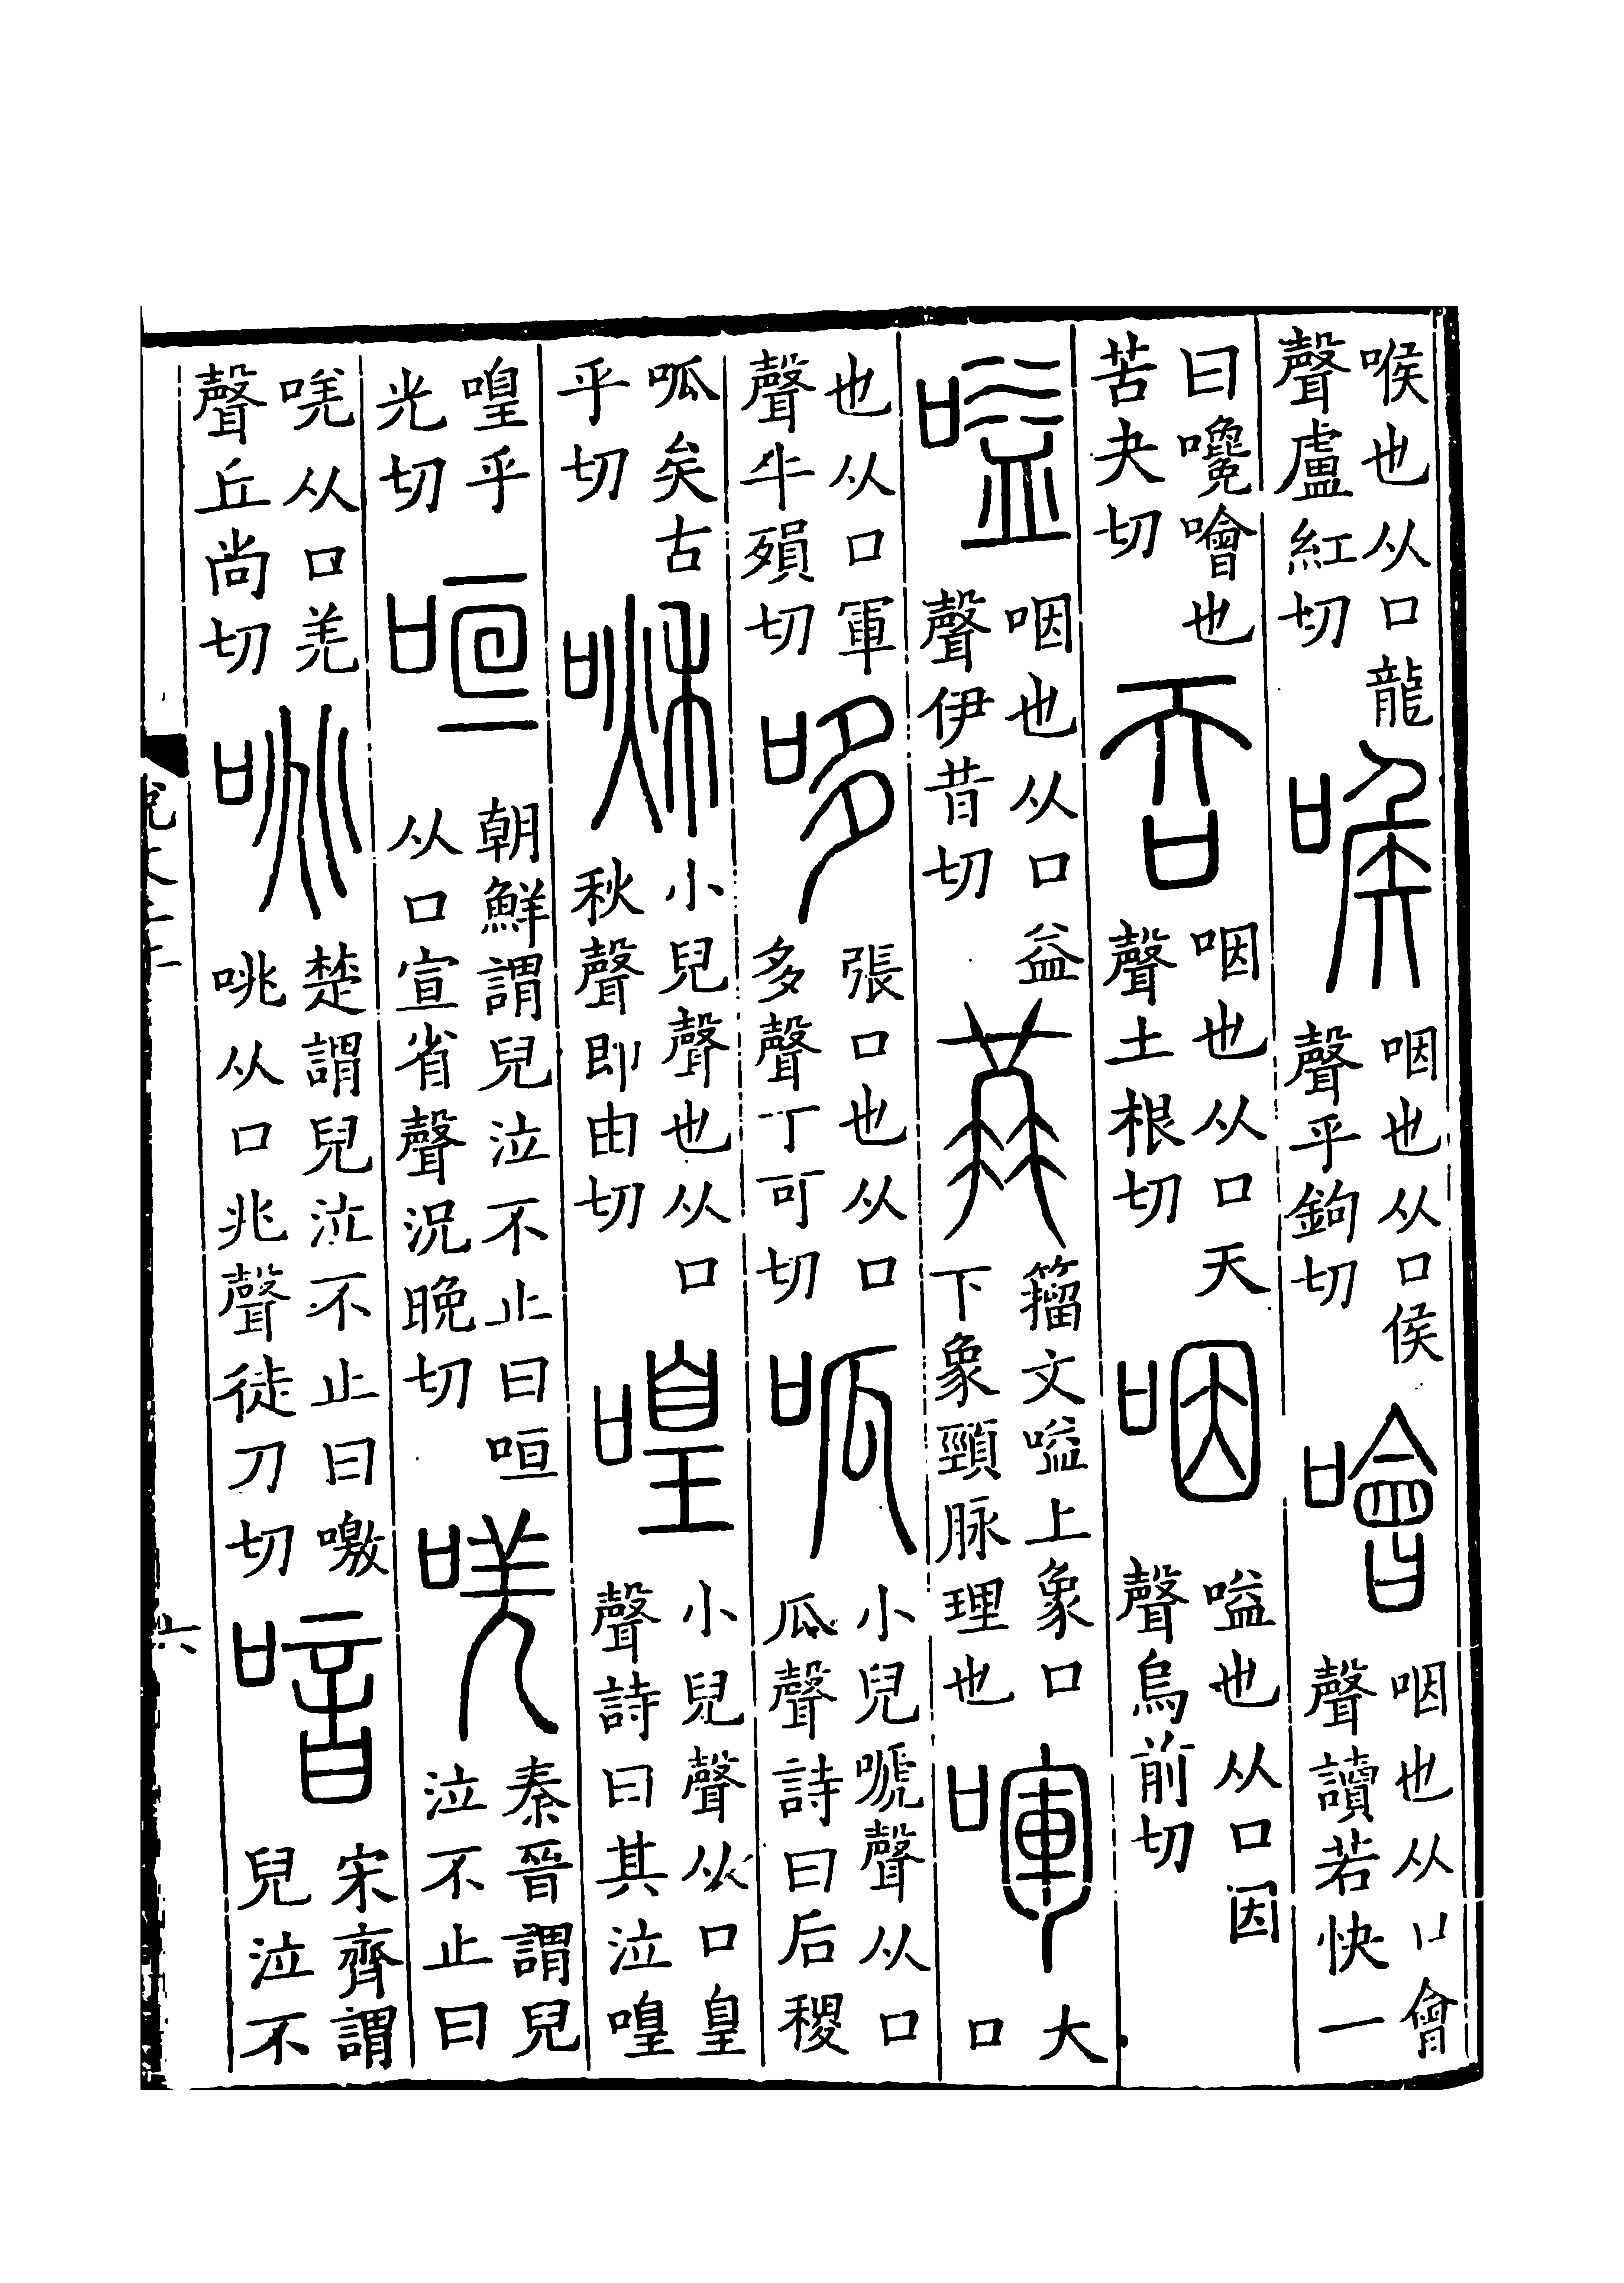 喉也从口龍聲盧紅切喉咽也从口侯聲乎鉤切噲咽也从口會聲讀若快一
曰嚵噲也苦夬切吞咽也从口天聲土根切咽嗌也从口因聲烏前切
嗌咽也从口益聲伊昔切籒文嗌上象口下象頸脉理也喗大口
也从口軍聲牛殞切哆張口也从口多聲丁可切呱小兒嗁聲从口瓜聲詩曰后稷
呱矣古乎切啾小兒聲也从口秋聲即由切喤小兒聲从口皇聲詩曰其泣喤
喤乎光切咺朝鮮謂兒泣不止曰咺从口宣省聲況晚切唴秦晉謂兒泣不止曰
唴从口羌聲丘尚切咷楚謂兒泣不止曰噭咷从口兆聲徒刀切喑宋齊謂兒泣不
六